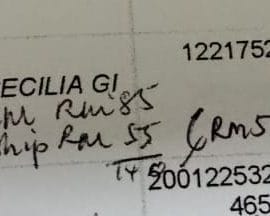 1221752
ECILIA G
RM 85
hip RM 55 (RM5
140
200122532
465